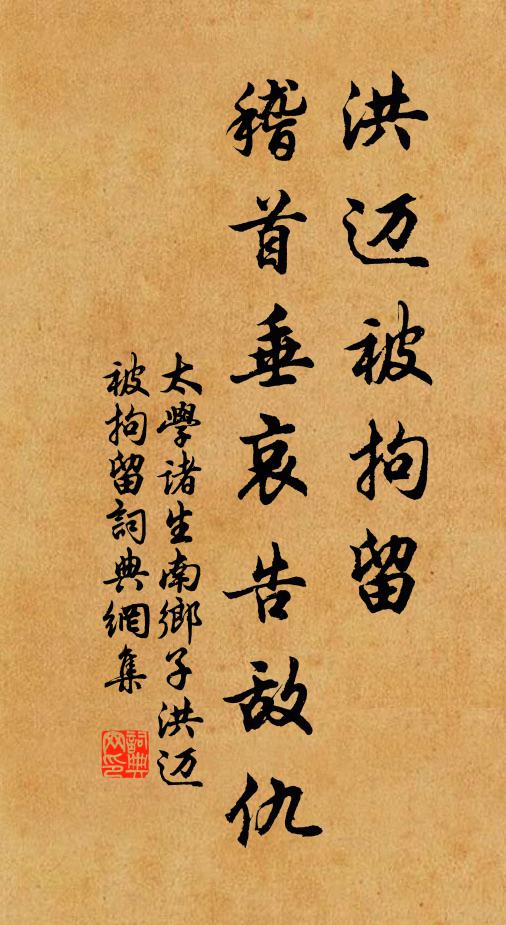 洪迈被拘留
稽首垂哀告敌仇
太學诸生南鄉子洪迈
被拘留詞典網集
詞典網印